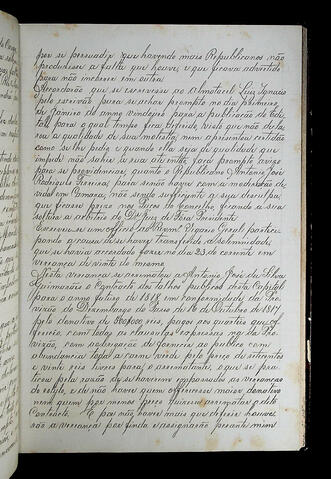 por se persuadir que havendo mais Republicanos não
produzisse a falta que houve, e que ficava advertido
para não incorrer em outra.
Acordarão que se escrevesse ao Almotacel Luiz Ignacio
pelo escrivão para se achar prompto no dia primeiro
de Janeiro do anno vindouro para a publicação do Edi-
tal para o qual tempo fica deferido visto que não decla-
rou a qualidade de sua molestia, nem apresentou certidão
como se lhe pedio, e quando ella seja de qualidade que
impede não sahir a rua até então fará prompto aviso
para se providenciar, quanto o Republicano Antonio José
Rodrigues Ferreira para senão haver com a moderação de-
vida em Camara, não sendo sufficiente a sua desculpa
que ficasse preso nos Paços do Conselho ficando a sua
soltura a arbitrio do Dr. Juiz de Fóra Presidente.
Escreveu-se um officio ao Revmº Vigario Geral partici-
pando a causa de se haver transferido a solemnidade
que se havia accordado fosse no dia 23 do corrente em
vereança de vinte do mesmo.
Nesta vereança se arrematou a Antonio José da Silva
Guimarães o Contracto dos talhos publicos desta Capital
para o anno futuro de 1818, em conformidade da Pro-
vizão do Dezembargo do Paço de 16 de Outubro de 1817
pelo donativo de 800$000 reis, pagos por quarteis que of-
fereceu, com todas as clausulas expressas na dita Pro-
vizão, com obrigação de fornecer ao publico com
abundancia toda a carne verde pelo preço de setecentos
e vinte reis livres para o arrematante, o que se pra-
ticou pela razão de se haverem emparado as vereanças
do estylo, e de não haver quem offerecesse maior donativo
nem quem por menos preço quizesse arrematar o dito
Contracto. E por não haver mais que deferir houve-
rão a vereança por finda e assignarão perante mim